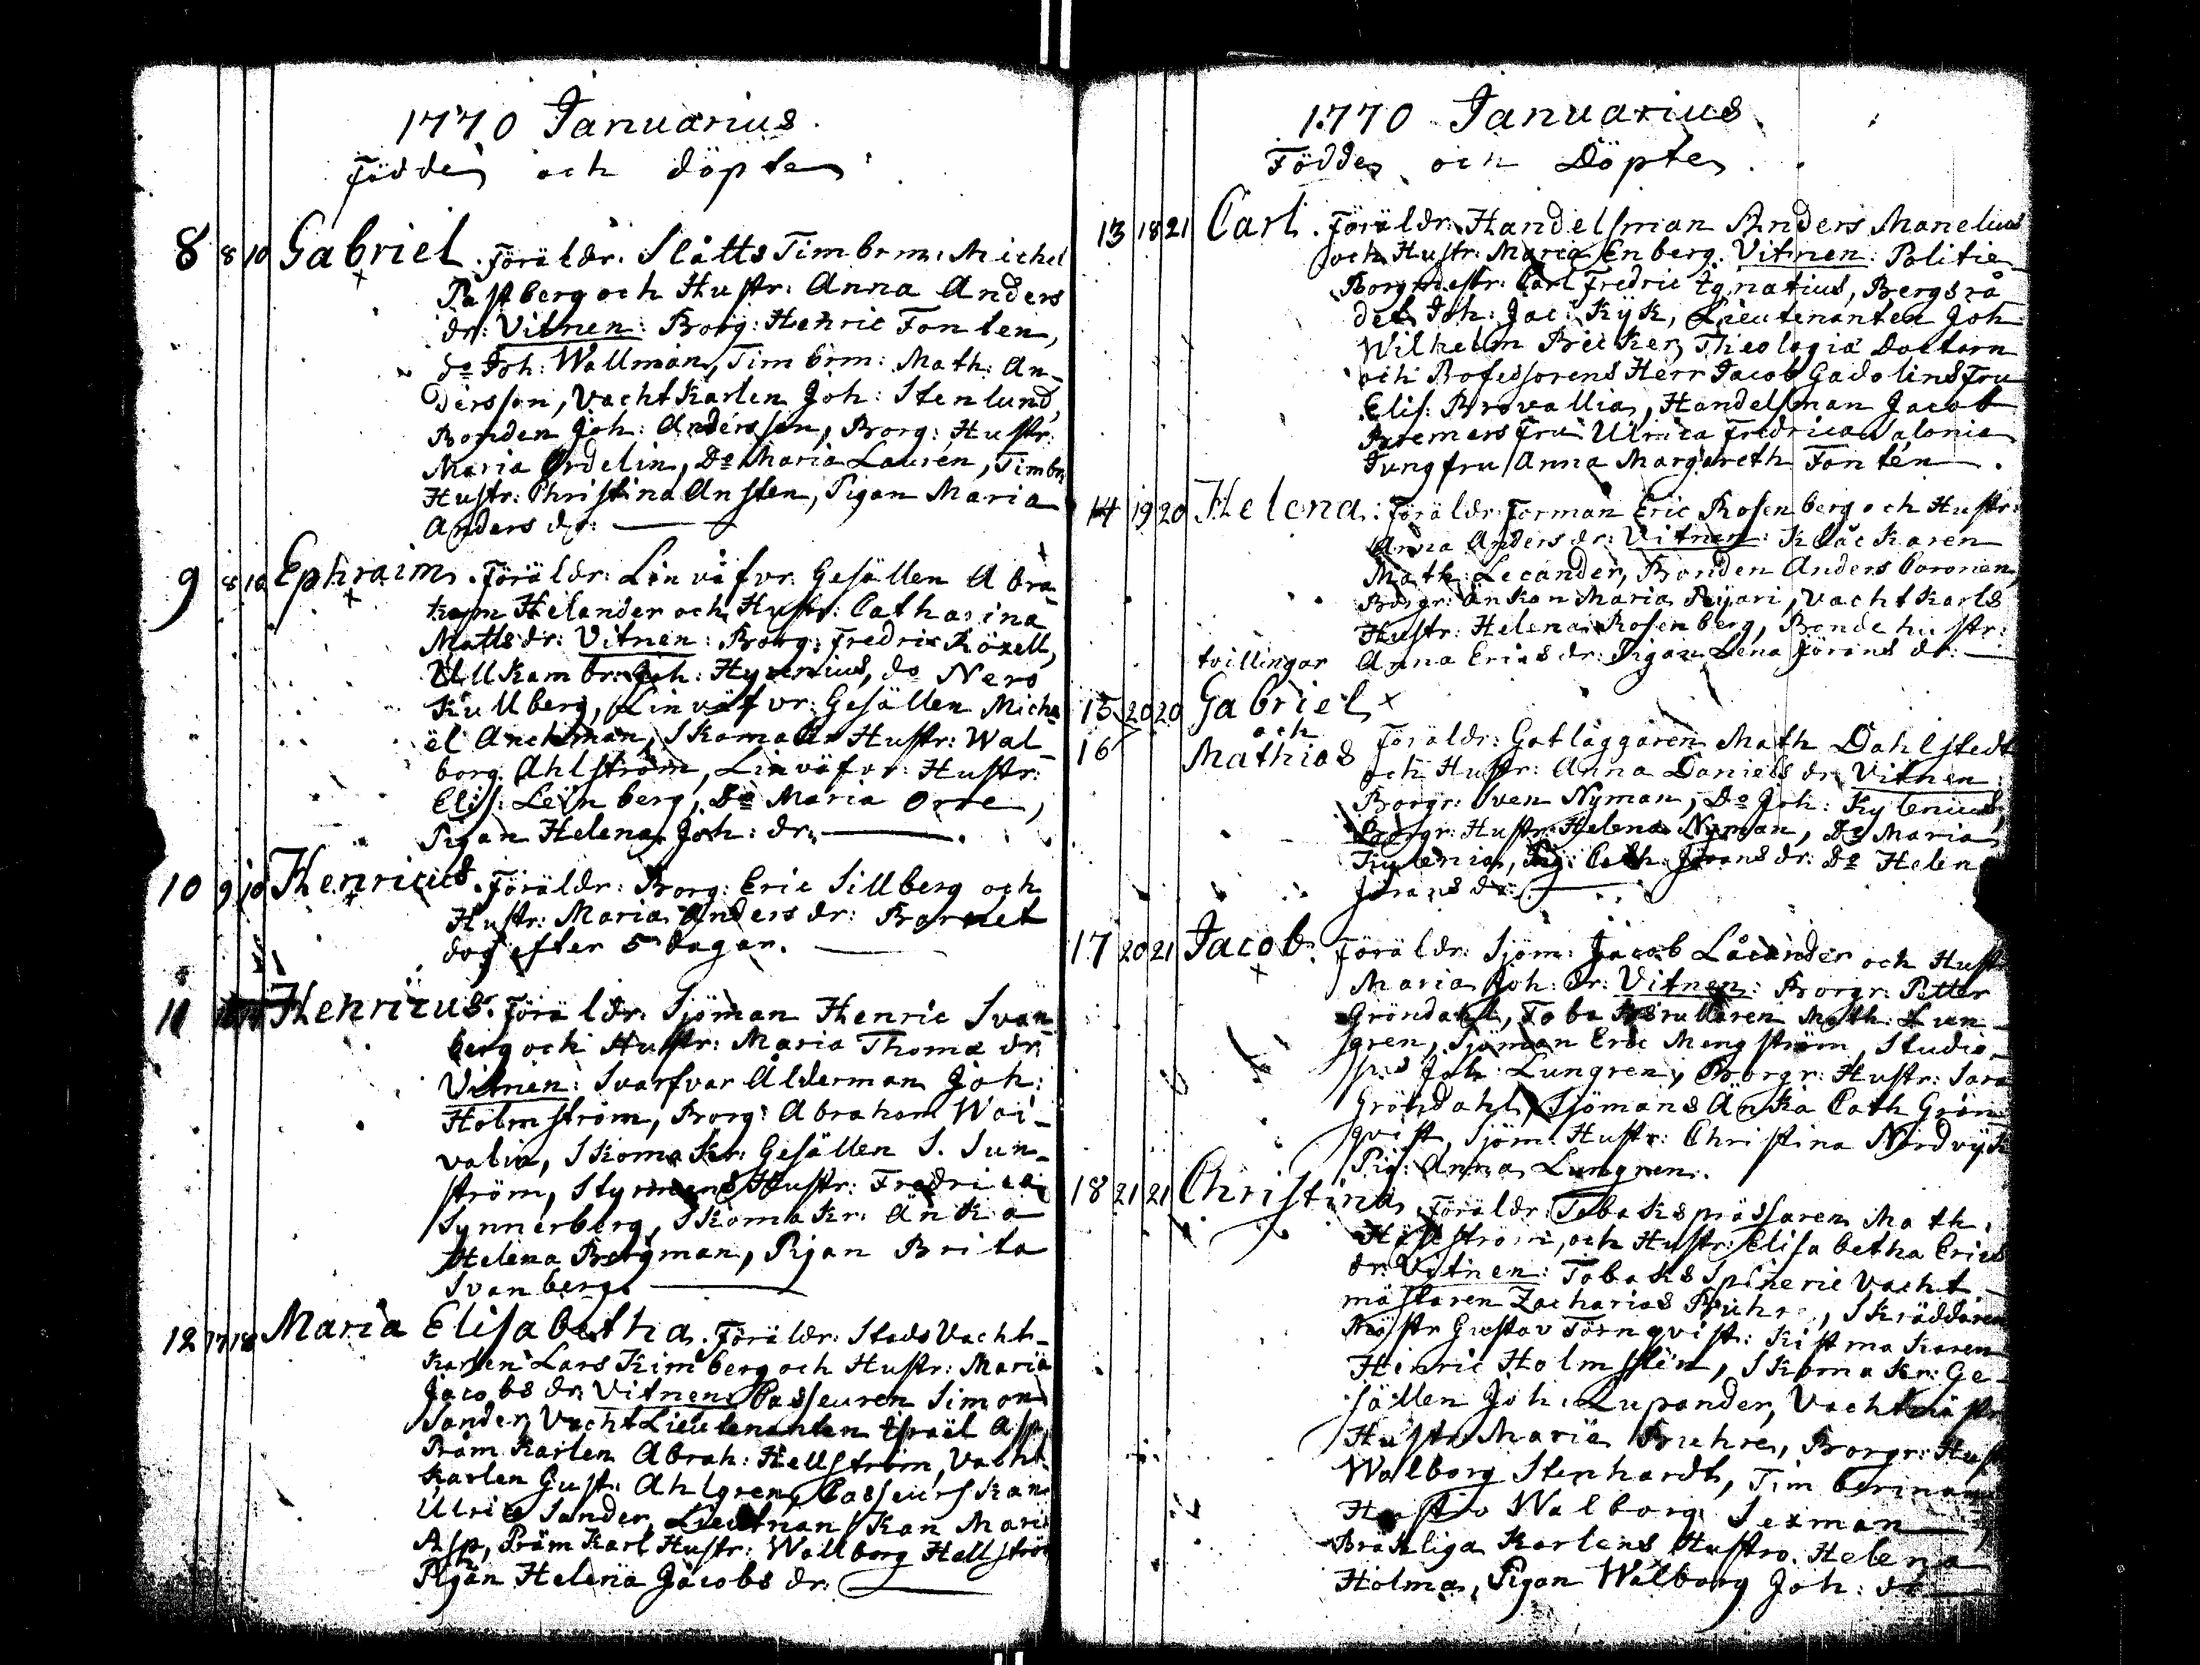 1770 Januarius.
Födde och döpte
8 8 10 Gabriel. Föräldr. Slåtts Timbrm: Michel
Pastberg och Hustr: Anna Anders
dr: Vitnen: Borg: Henric Fonten,
do Joh: Wallman, Timbrm: Math: An-
dersson, Vachtkarlen Joh: Stenlund,
Bonden Joh: Andersson, Borg: Hustr:
Maria Ördelin, Do Maria Lauren, Timbr
Hustr: Christina Ansten, Pigan Maria
Anders dr:
9 8 10 Ephraim. Föräldr: Linväfvr: Gesällen Abra-
ham Helander och Hustr: Catharina
Matts dr: Vitnen: Borg: Fredric Röxell,
Ullkambr: Joh: Hyrenius, do Nero
Kullberg, Linväfvr: Gesällen Micha
ël Anckman, Skomakr Hustr: Wal-
borg Ahlström, Linväfvr: Hustr:
Elis: Leÿnberg, Do Maria Orre,
Pigan Helena Joh: dr:
10 9 10 Henricus. Föräldr: Borg: Eric Sillberg och
Hustr: Maria Anders dr: Barnet
dog efter 5 dagar.
11 Henricus. Föräldr. Sjöman Henric Svan
berg och Hustr: Maria Thomæ dr:
Vitnen: Svarfvar Ålderman Joh:
Holmström, Borg: Abraham Wai-
valin, Skomakr: Gesällen S. Sun-
ström, Styrmans Hustr: Fredrica
Synnerberg, Skomakr: Änka
Helena Bergman, Pigan Brita
Svanberg.
12 17 18 Maria Elisabetha. Föräldr: Stads Vacht-
karlen Lars Kimberg och Hustr: Maria
Jacobs dr: Vitnen Casseuren Simon
Sander, Vacht Lieutenanten Israël Asp,
Pråm karlen Abrah: Hellström, Vacht
karlen Gust: Ahlgren, Casseurskan
Ulrica Sander, Lieutnanskan Maria
Asp, Pråm karl Hustr: Wallborg Hellströ
Pigan Helena Jacobs dr:
1770 Januarius
Födde och Döpte
13 18 21 Carl. Föräldr. Handelsman Anders Manelius
och Hustr: Maria Enberg. Vitnen: Politie
Borgmestr: Carl Fredric Ignatius, Bergsrå
det Joh: Jac: Kijk, Lieutenanten Joh
Wilhelm Bricker, Theologiæ Doctorn
och Professorens Herr Jacob Gadolins Fru
Elis: Brovallia, Handelsman Jacob
Bremers Fru Ulrica Fredrica Salonia
Jungfru Anna Margareth Fontén.
14 19 20 Helena. Föräldr: Forman Eric Rosenberg och Hustr:
Anna Anders dr: Vitnen: Klåckaren
Math: Lecander, Bonden Anders Coronen,
Borgr: änkan Maria Pajari, Vachtkarls
Hustr: Helena Rosenberg, Bonde hustr:
Anna Erics dr: Pigan Lena Jörans dr:
tvillingar
15 20 20 Gabriel
och
16 Mathias Föräldr: Gatläggaren Math Dahlstedt
och Hustr: Anna Daniels dr: Vitnen:
Borgr: Sven Nyman, Do Joh: Kylenius,
Borgr: Hustr: Helena Nyman, Do Maria
Kylenia, Pig: Cath: Jörans dr: Do Helen
Jörans dr:
17 20 21 Jacob. Föräldr: Sjöm: Jacob Låcander och Hustr
Maria Joh: dr: Vitnen: Borgr: Petter
Gröndahl, Tobaksrullaren Math: Lun-
gren, Sjöman Eric Mengström, Studio-
sus Joh: Lungren, Borgr: Hustr: Sara
Gröndahl, Sjömans Änka Cath Grön-
qvist, Sjöm: Hustr: Christina Nordvijk
Pig: Anna Lungren.
18 21 21 Christina. Föräldr: Tobakspråssaren Math:
Höckström, och Hustr: Elisabetha Erics
dr: Vitnen: Tobaks Spinerie Vacht-
mästaren Zacharias Bruhn, Skräddaren
Mästr Gustav Törnqvist: Kistmakaren
Henric Holmstén, Skomakr: Ge-
sällen Joh: Lupander, Vachtmästr
Hustr Maria Bruhn, Borgr: Hust
Walborg Stenhardt, Timberman
Hustr Walborg Sexman
Bräkliga Karlens Hustro. Helena
Holma, Pigan Walborg Joh: dr